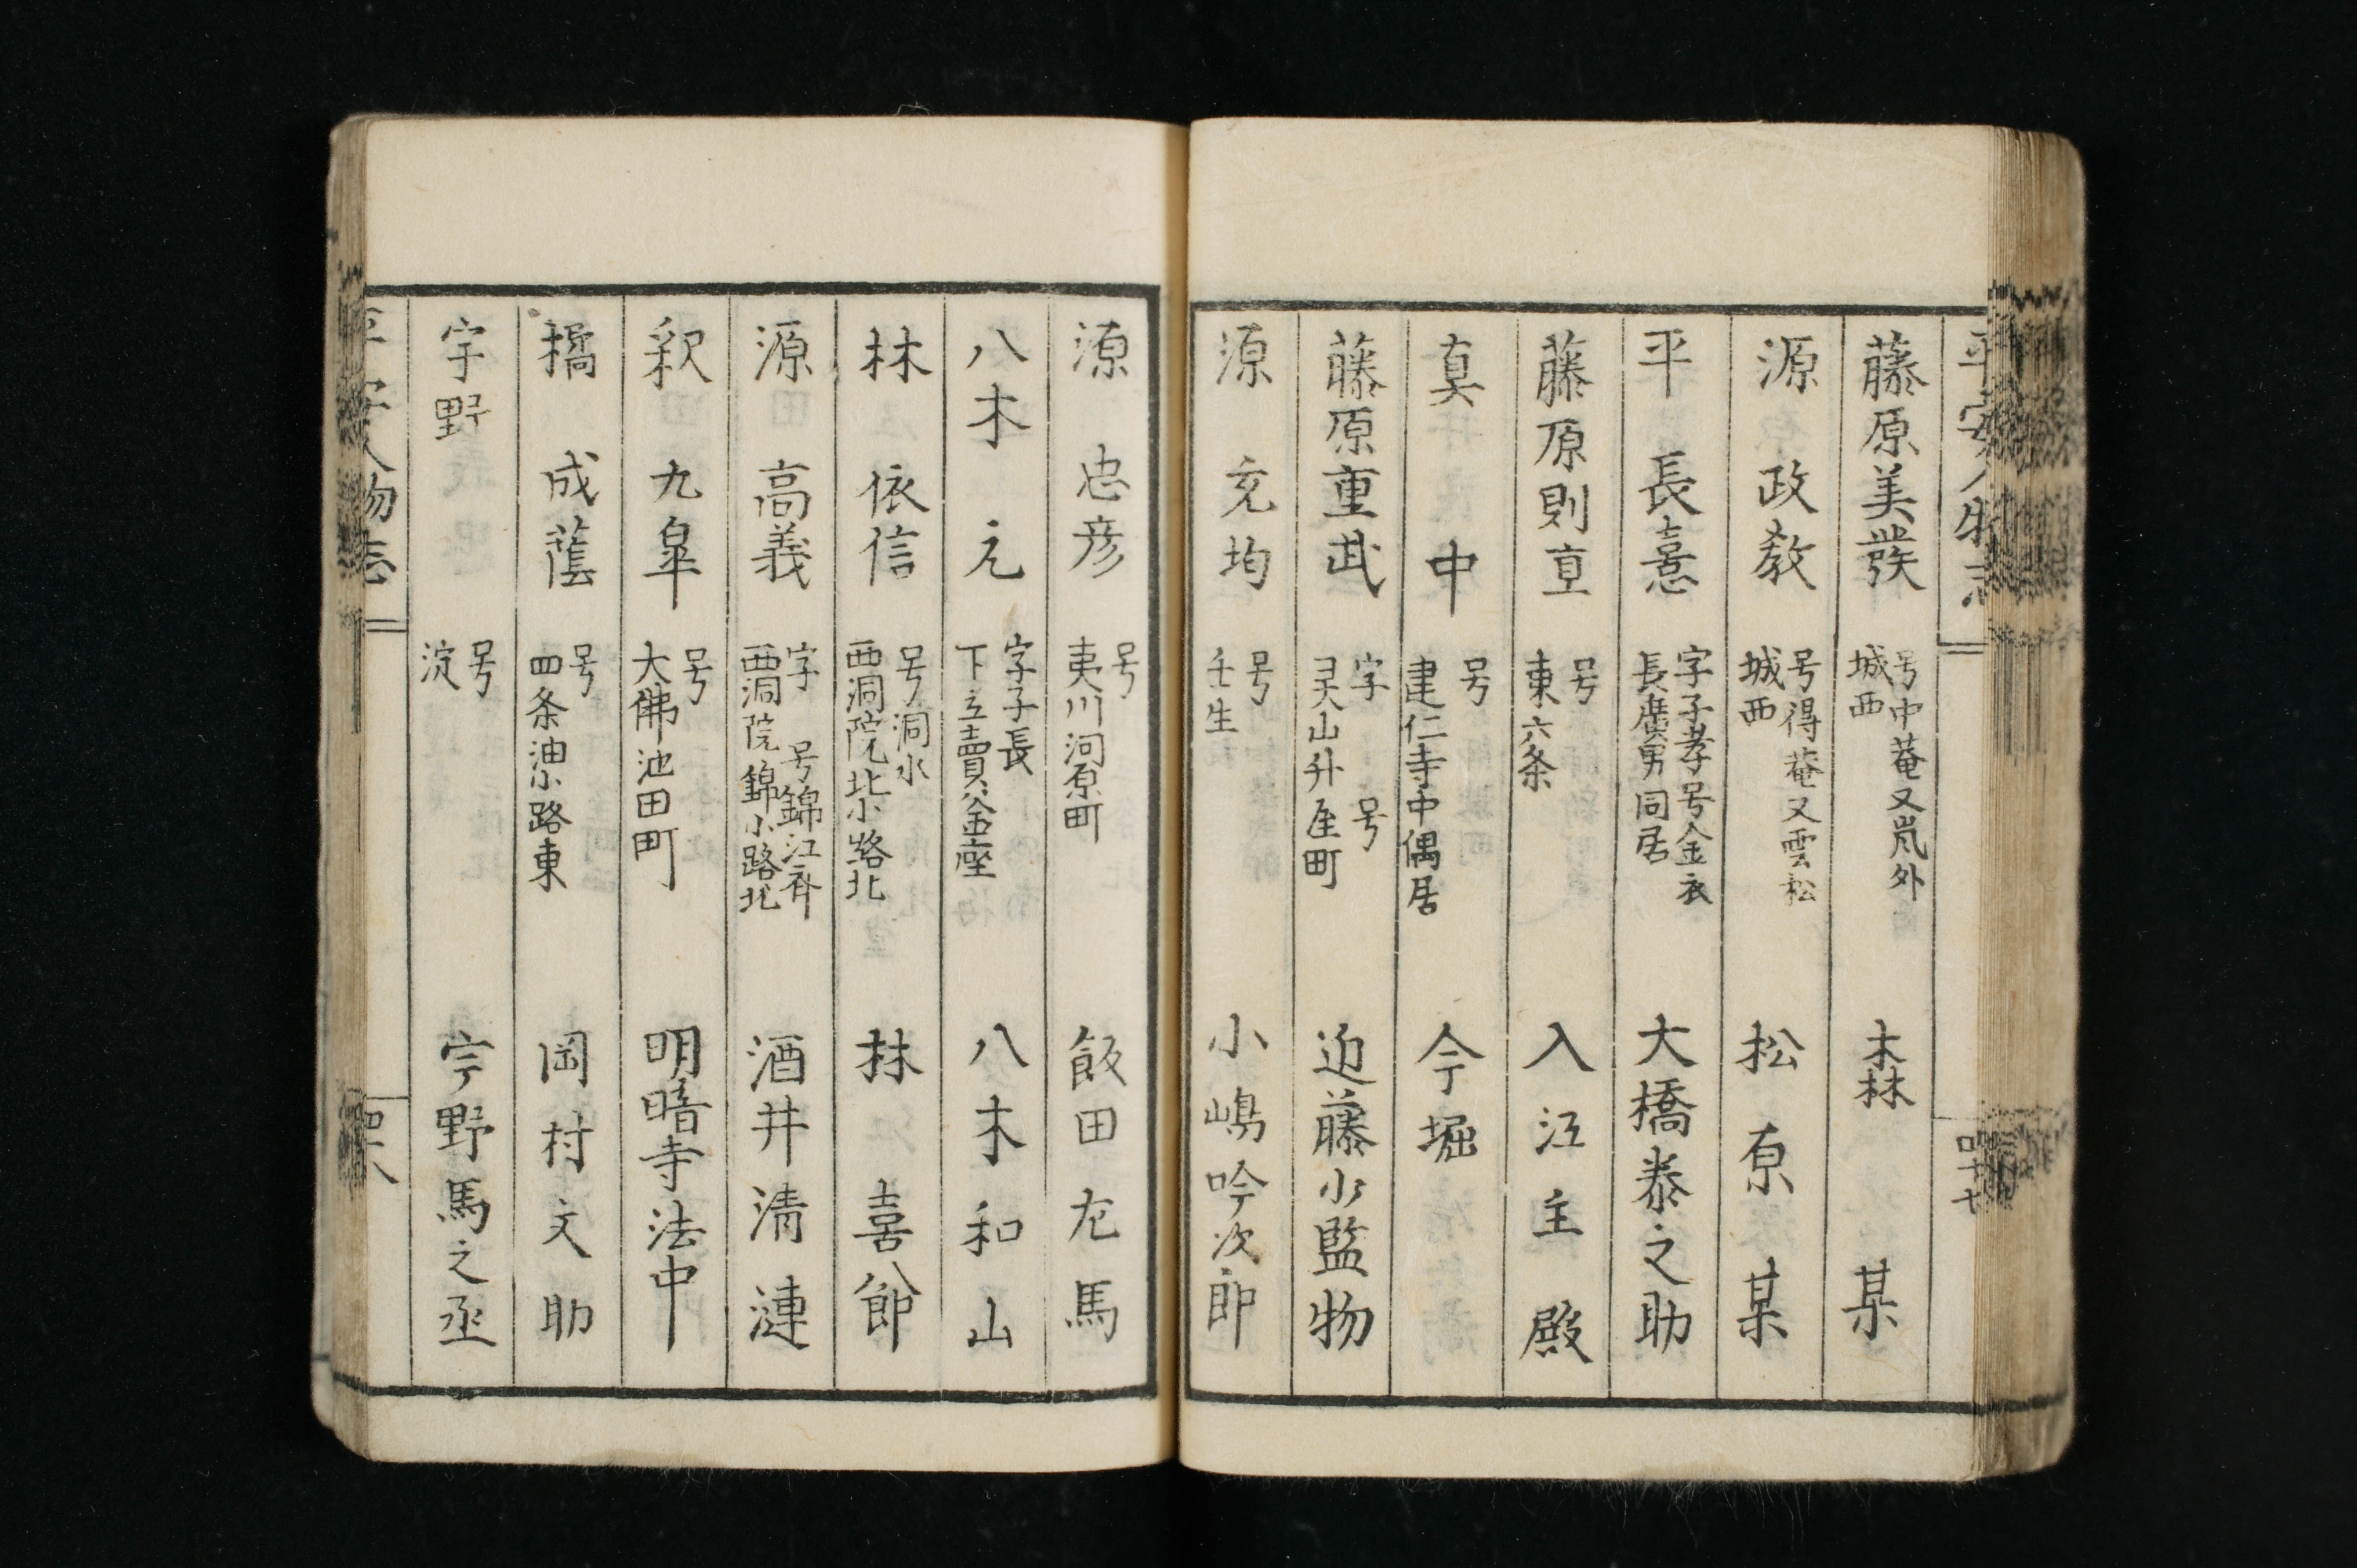 平安人物志
四十七
藤原美發 号中菴又嵐外 城西 森 某
源 政教 号得菴又雲松 城西 松原 某
平 長憙 字子孝号金衣 長廣男同居 大橋泰之助
藤原則亶 号 東六条 入江主殿
真 中 号 建仁寺中偶居 今堀
藤原重武 字 号 灵山升屋町 近藤小監物
源 充均 号 壬生 小嶋吟次郎
源 忠彦 号 夷川河原町 飯田左馬
八木 元 字子長 下立賣金座 八木和山
林 依信 号洞水 西洞院北小路北 林 喜節
源 高義 字 号錦江齊 西洞院錦小路北 酒井清漣
釈 九皐 号 大佛池田町 明暗寺法中
橘 成蔭 号 四条油小路東 岡村文助
宇野 号 淀 宇野馬之丞
平安人物志
四十八